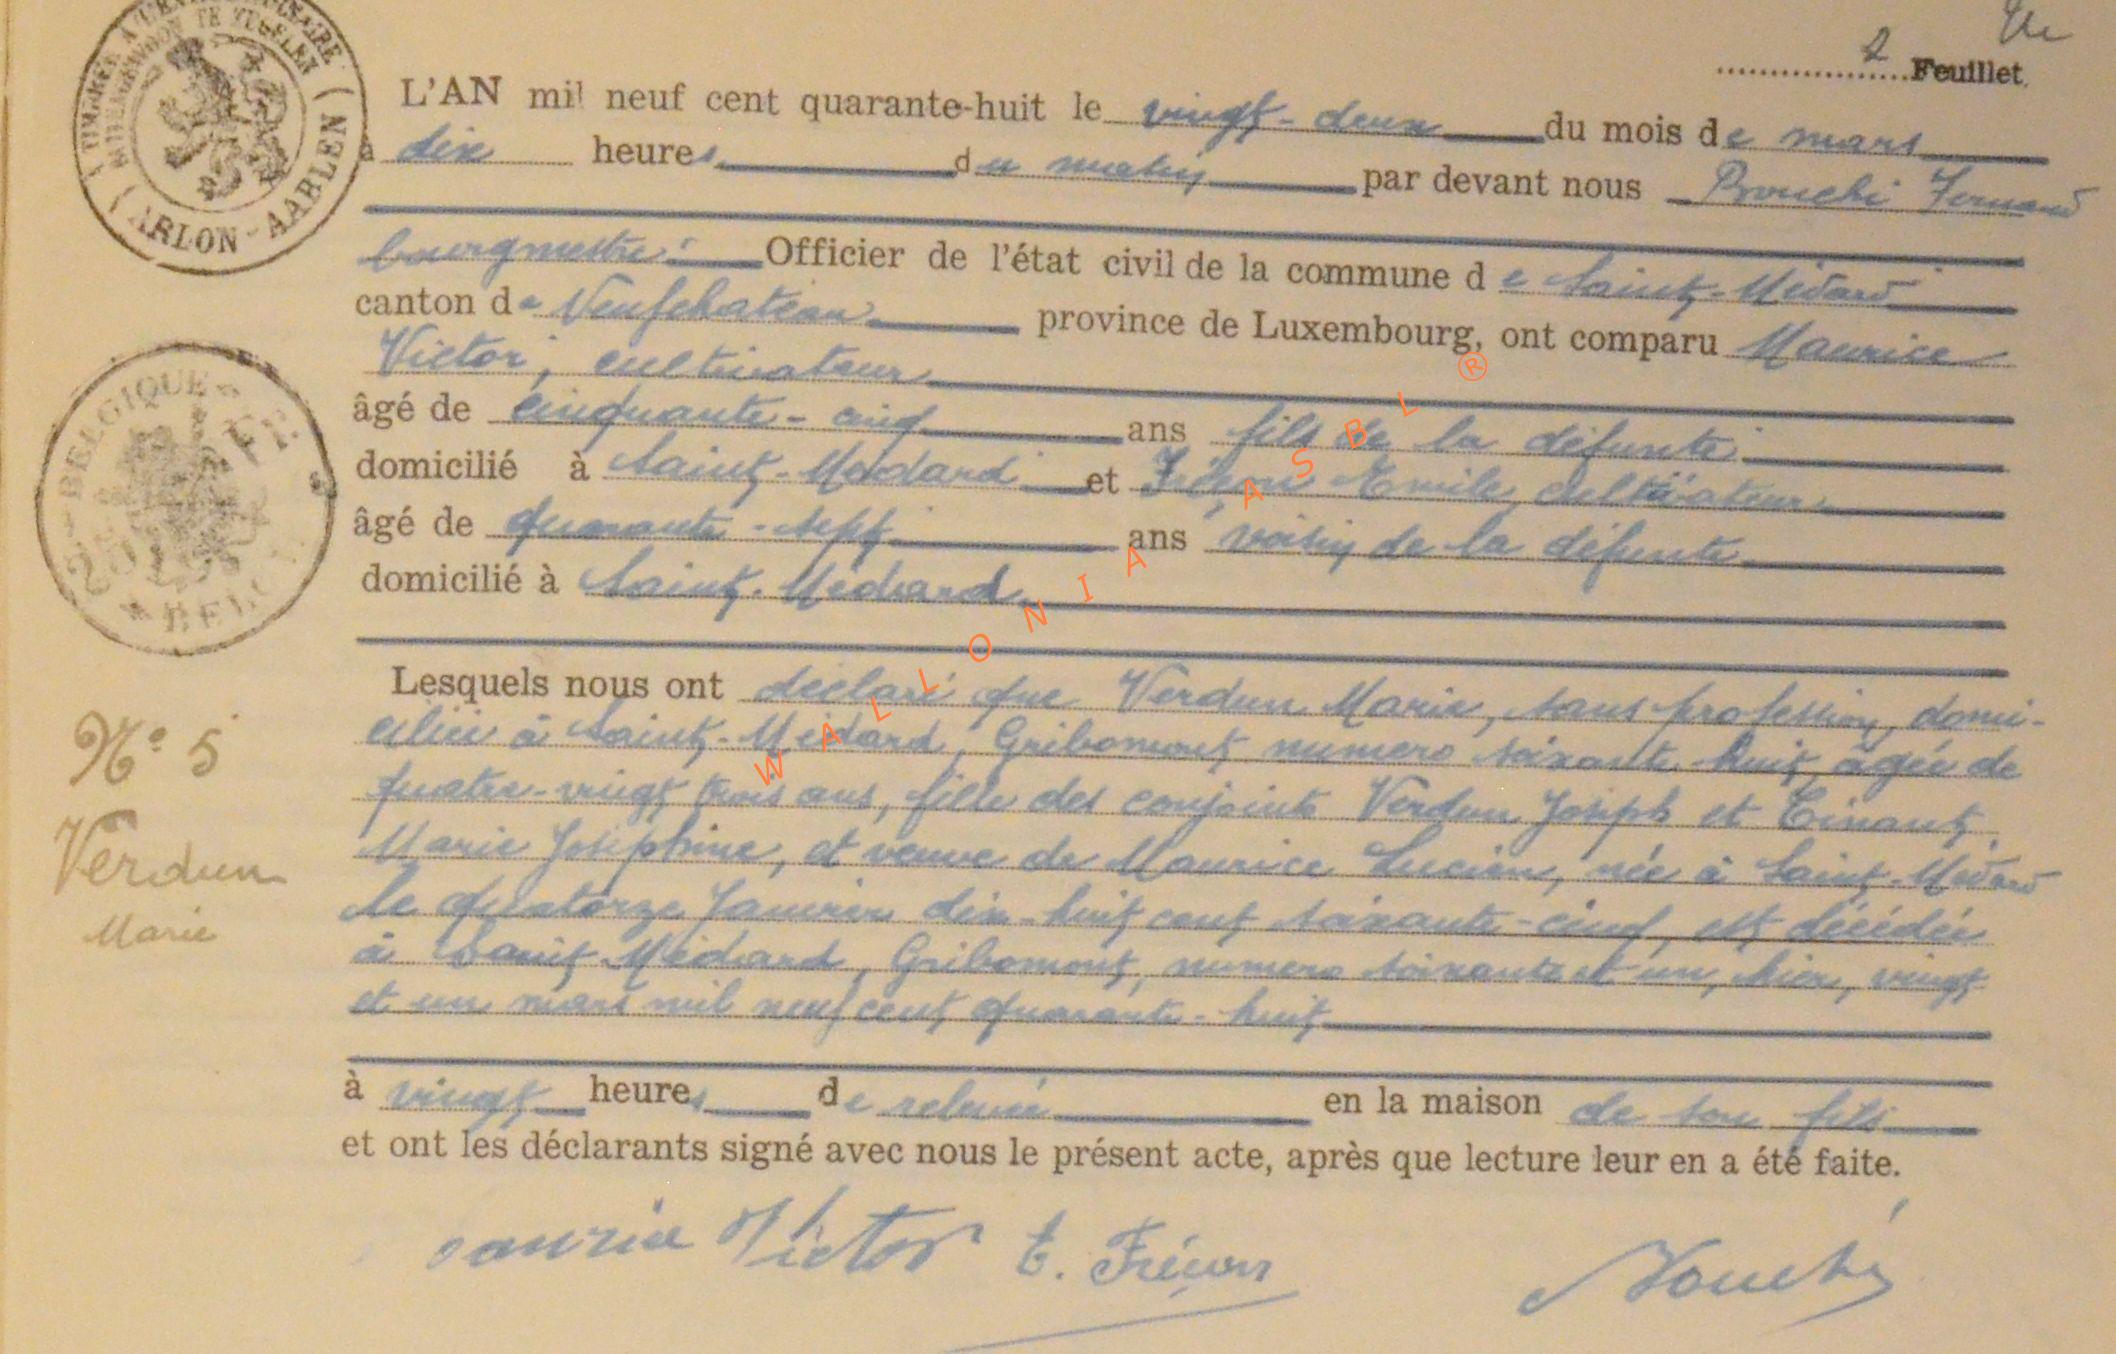 2 Feuillet.
L'AN mil neuf cent quarante-huit le vingt-deux du mois de mars
à dix heures du matin par devant nous Bouché Fernand
bourgmestre Officier de l'état civil de la commune de Saint-Médard
canton de Neufchateau province de Luxembourg, ont comparu Maurice
Victor, cultivateur
âgé de cinquante-cinq ans fils de la défunte
domicilié à Saint-Médard et Emile, cultivateur
âgé de quarante-sept ans voisin de la défunte
domicilié à Saint-Médard
Lesquels nous ont déclaré que Verdun Marie, sans profession, domi-
ciliée à Saint-Médard, Gribomont numero soixante huit, âgée de
quatre-vingt trois ans, fille des conjoints Verdun Joseph et Tinant
Marie Joséphine, et veuve de Maurice Lucien, née à Saint-Médard
le quatorze Janvier dix-huit cent soixante-cinq, est décédée
à Saint-Médard, Gribomont, numero soixante et un, hier, vingt
et un mars mil neuf cent quarante-huit
à vingt heures de relevée en la maison de son fils
et ont les déclarants signé avec nous le présent acte, après que lecture leur en a été faite.
Maurice Victor E. Bouché
N° 5
Verdun
Marie
ARLON-AARLEN
BELGIQUE
WALLONIA ASBL ®